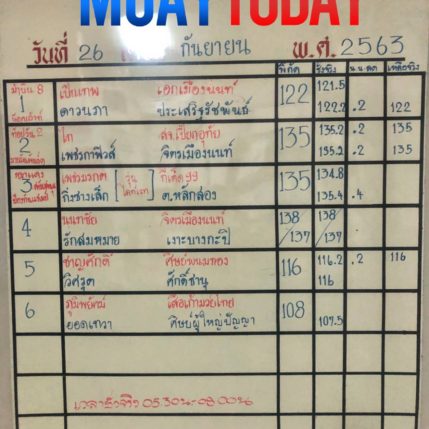 MUAY TODAY
วันที่ 26 กันยายน พ.ศ. 2563
พิกัด ชั่งจริง
1 เป็นเทพ เอกเมืองนนท์ 122 121.5
ดาวนภา ประเสริฐรัชพันธ์ 122.2 .2 122
2 ไก่ 135 135.2 .2 135
จิตรเมืองนนท์ 135.2 .2 135
3 เพชรมรกต 135 134.8
กิ่งซางเล็ก ต.หลักสอง 135.4 .4
4 นนทชัย จิตรเมืองนนท์ 138 138
รักสมหมาย เงาะบางกะปิ 137 137
5 ชาญศักดิ์ ศิษย์พนมทอง 116 116.2 .2 116
วิศรุต ศักดิ์ชานุ 116
6 ภูมิพยัคฆ์ เสือเก้ามวยไทย 108
ยอดเทวา ศิษย์ผู้ใหญ่ปัญญา 107.5
เวลาชั่งจริง 05.30น-08.00น